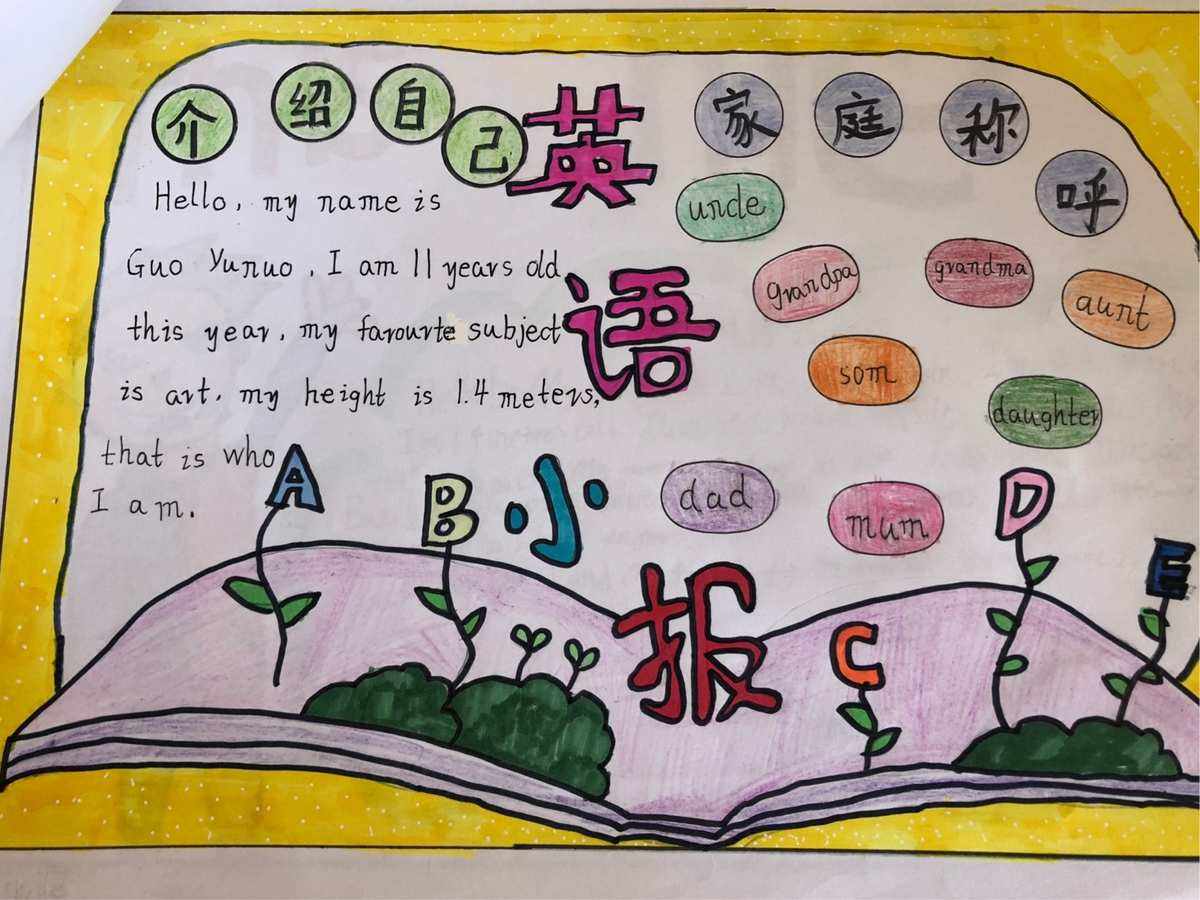 介绍自己
Hello, my name is
Guo Yunuo, I am 11 years old
this year, my farourte subject
is art. my height is 1.4 meters,
that is who
I am.
英
语
小
报
家庭称呼
uncle
grandpa
grandma
aunt
som
daughter
dad
mum
A
B
C
D
E